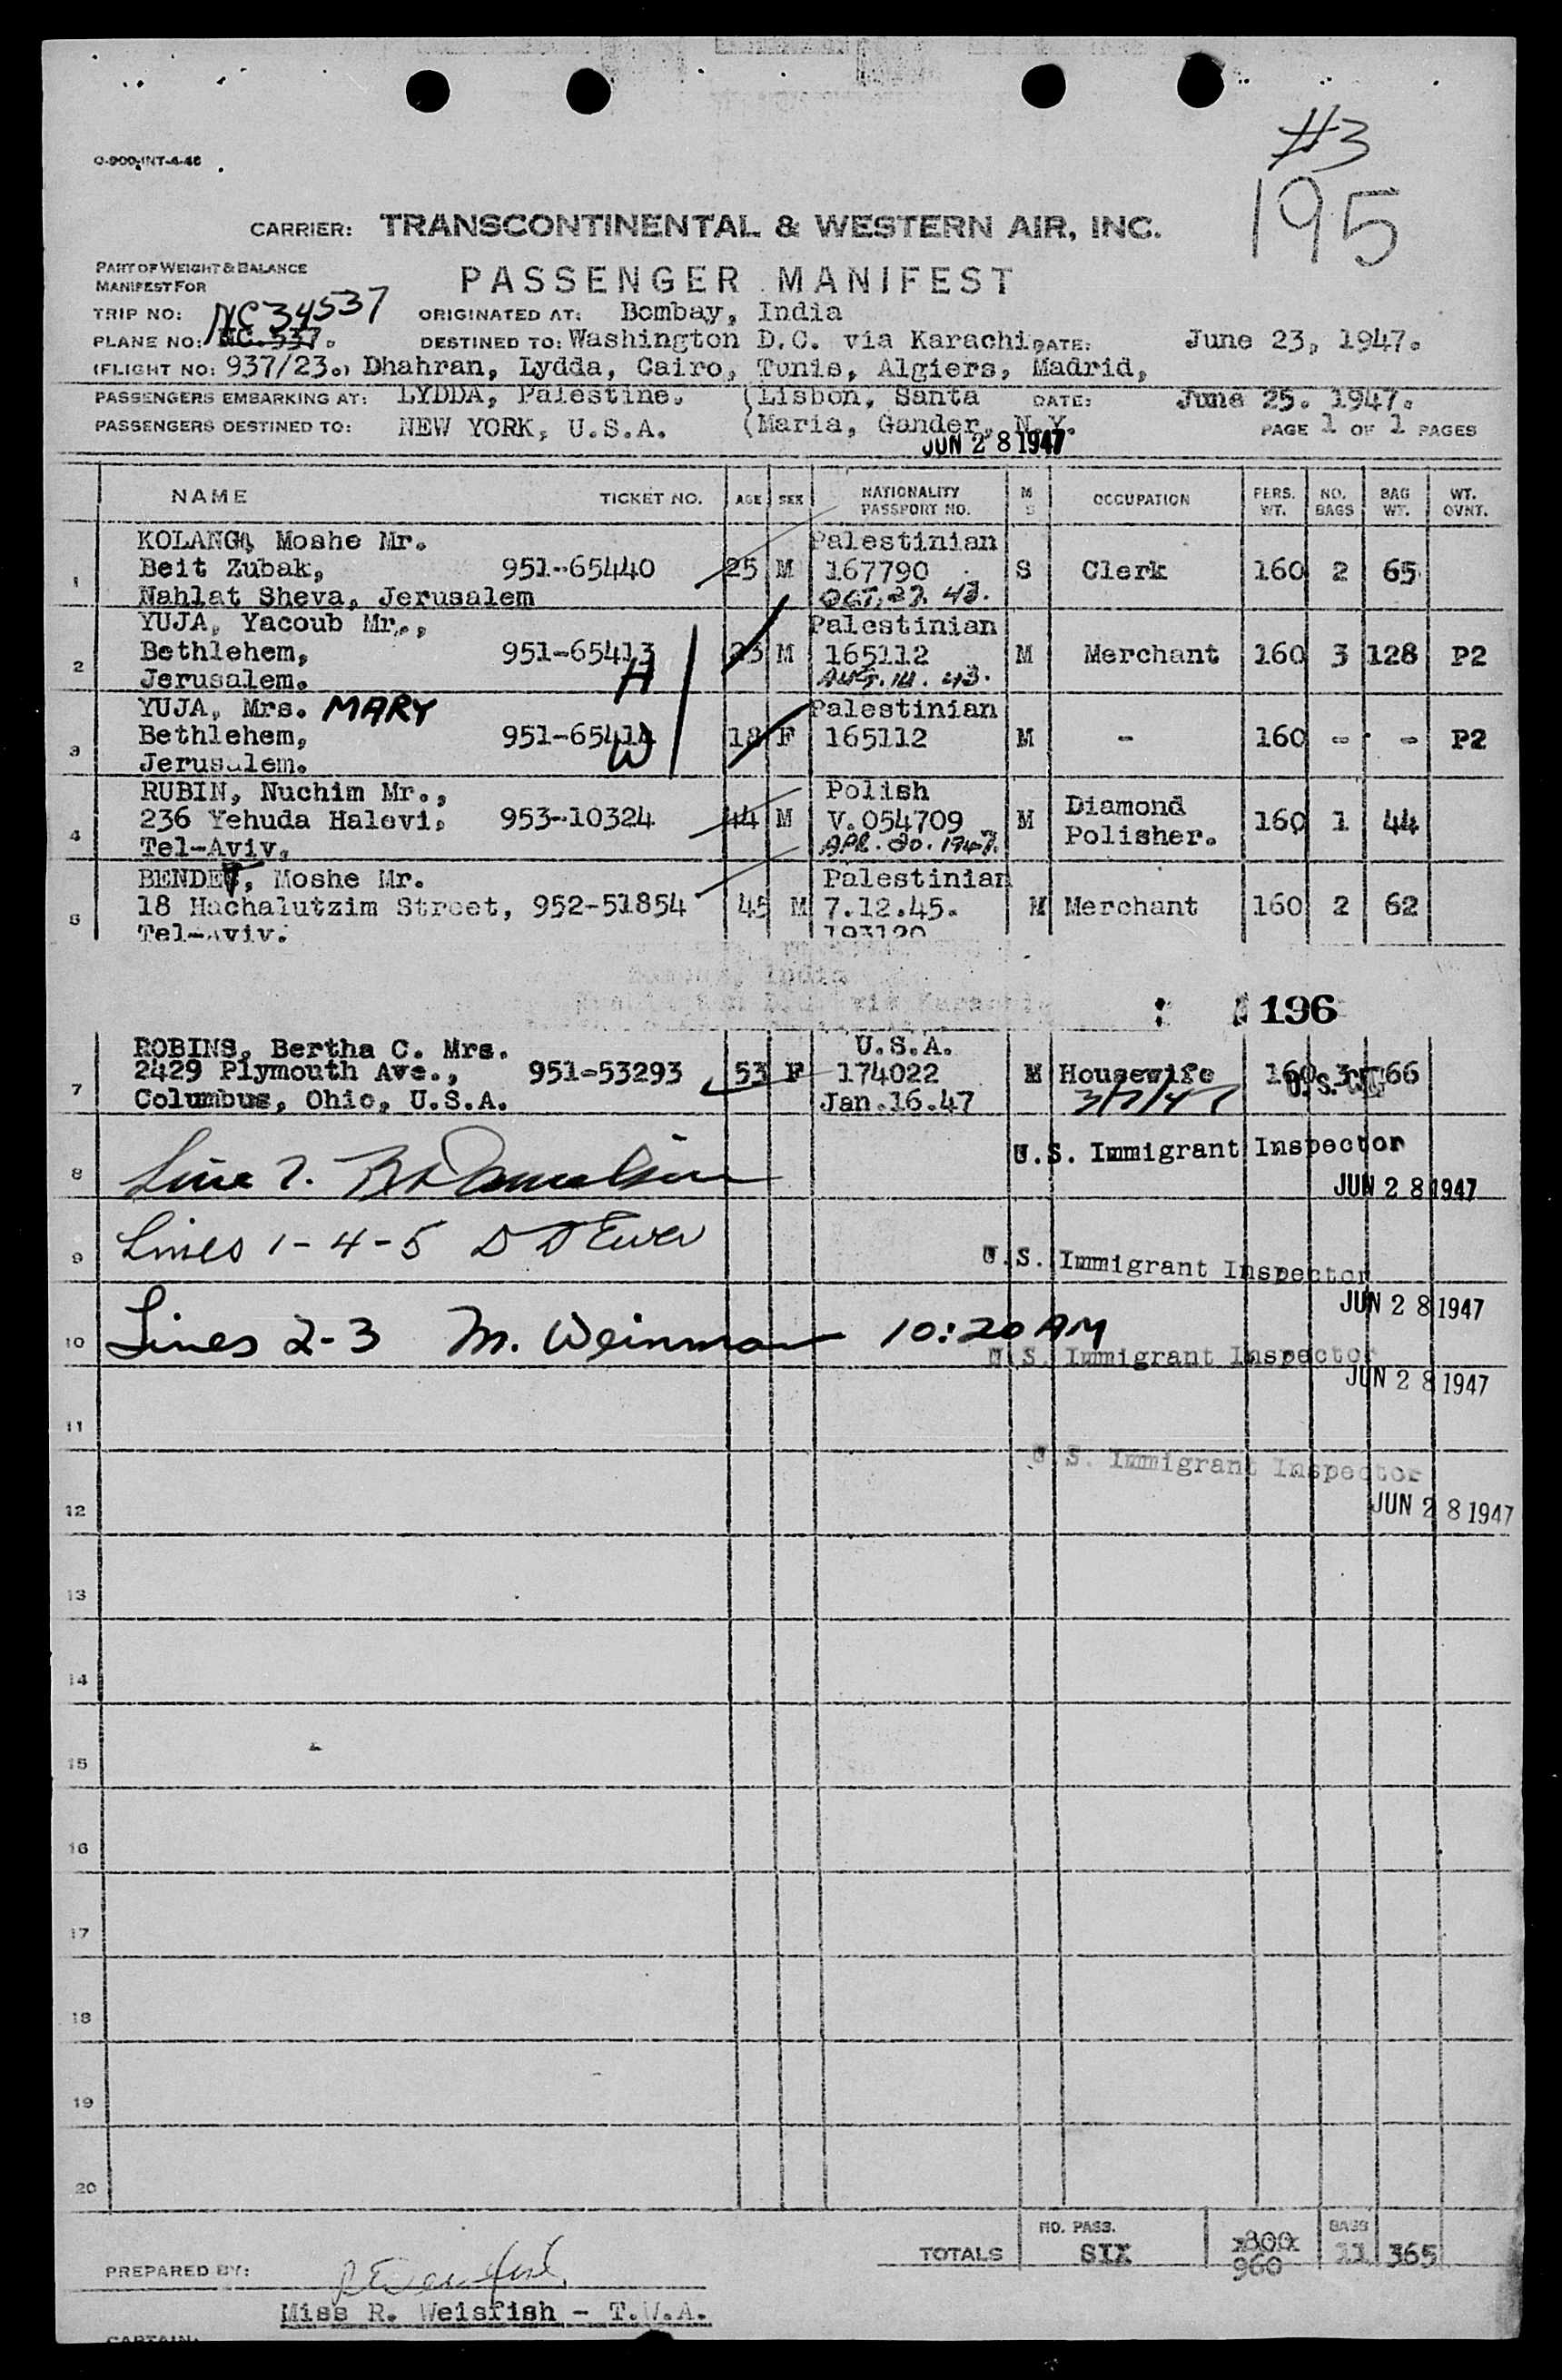 #3
195
O-900-INT-4-46
CARRIER: TRANSCONTINENTAL & WESTERN AIR, INC.
PART OF WEIGHT & BALANCE
MANIFEST FOR
PASSENGER MANIFEST
TRIP NO: NC34537 ORIGINATED AT: Bombay, India
PLANE NO: NC.537. DESTINED TO: Washington D.C. via Karachi, DATE: June 23, 1947.
(FLIGHT NO: 937/23.) Dhahran, Lydda, Cairo, Tunis, Algiers, Madrid,
PASSENGERS EMBARKING AT: LYDDA, Palestine. (Lisbon, Santa DATE: June 25. 1947.
PASSENGERS DESTINED TO: NEW YORK, U.S.A. (Maria, Gander, N.Y. PAGE 1 OF 1 PAGES
JUN 28 1947
NAME TICKET NO. AGE SEX NATIONALITY PASSPORT NO. M S OCCUPATION PERS. WT. NO. BAGS BAG WT. WT. OVNT.
KOLANGA, Moshe Mr. Palestinian
1 Beit Zubak, 951-65440 25 M 167790 S Clerk 160 2 65
Nahlat Sheva, Jerusalem OCT. 27. 43.
YUJA, Yacoub Mr., Palestinian
2 Bethlehem, 951-65413 23 M 165112 M Merchant 160 3 128 P2
Jerusalem. H AUG. 14. 43.
YUJA, Mrs. MARY Palestinian
3 Bethlehem, 951-65414 18 F 165112 M - 160 - - P2
Jerusalem. W
RUBIN, Nuchim Mr., Polish
4 236 Yehuda Halevi, 953-10324 44 M V.054709 M Diamond Polisher. 160 1 44
Tel-Aviv. APR. 20. 1947.
BENDET, Moshe Mr. Palestinian
5 18 Hachalutzim Street, 952-51854 45 M 7.12.45. M Merchant 160 2 62
Tel-Aviv. 193120
196
ROBINS, Bertha C. Mrs. U.S.A.
7 2429 Plymouth Ave., 951-53293 53 F 174022 M Housewife 160 3 66
Columbus, Ohio, U.S.A. Jan.16.47 3/7/47
U.S. Immigrant Inspector
8 Line 7.
JUN 28 1947
9 Lines 1-4-5 D D Ewer
U.S. Immigrant Inspector
JUN 28 1947
10 Lines 2-3 M. Weinman 10:20 AM
U.S. Immigrant Inspector
JUN 28 1947
11
U.S. Immigrant Inspector
12 JUN 28 1947
13
14
15
16
17
18
19
20
TOTALS NO. PASS. SIX 800 960 BAGS 11 365
PREPARED BY:
Miss R. Weisfish - T.W.A.
CAPTAIN: